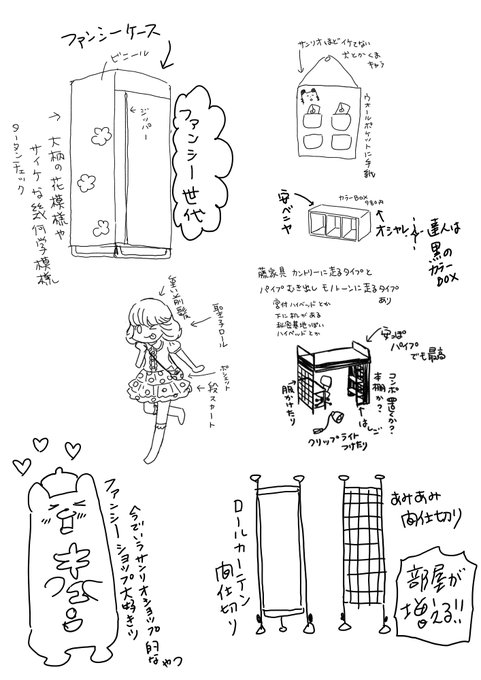 ファンシーケース
ビニール
ジッパー
大柄の花模様や
サイケな幾何学模様
タータンチェック
ファンシー世代
サンリオほどイケてない
犬とかくま
キャラ
ウォールポケットに手紙
安ベニヤ
カラーBOX
980円
オシャレ
達人は
黒の
カラー
BOX
籐家具 カントリーに走るタイプと
パイプむき出し モノトーンに走るタイプ
あり
宮付ハイベッドとか
下に机がある
秘密基地っぽい
ハイベッドとか
重い前髪
聖子ロール
ポシェット
段スカート
安っぽ
パイプ
でも最高
服かけたり
コンポ置くか?
本棚か?
はしご
クリップライト
つけたり
ファンシー
ショップ大好きッ
今でいうサンリオショップ
的なやつ
ロールカーテン
間仕切り
あみあみ
間仕切り
部屋が
増える!!